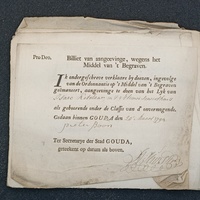 Pro Deo.
Billiet van aangeevinge, wegens het
Middel van 't Begraven.
Ik ondergeschreve verklaare by deezen, ingevolge
van de Ordonnantie op 't Middel van 't Begraven
geëmaneert, aangeevinge te doen van het Lyk van
als gehoorende onder de Classis van d' onvermogende.
Gedaan binnen GOUDA den
Ter Secretarye der Stad GOUDA,
geteekent op datum als boven,